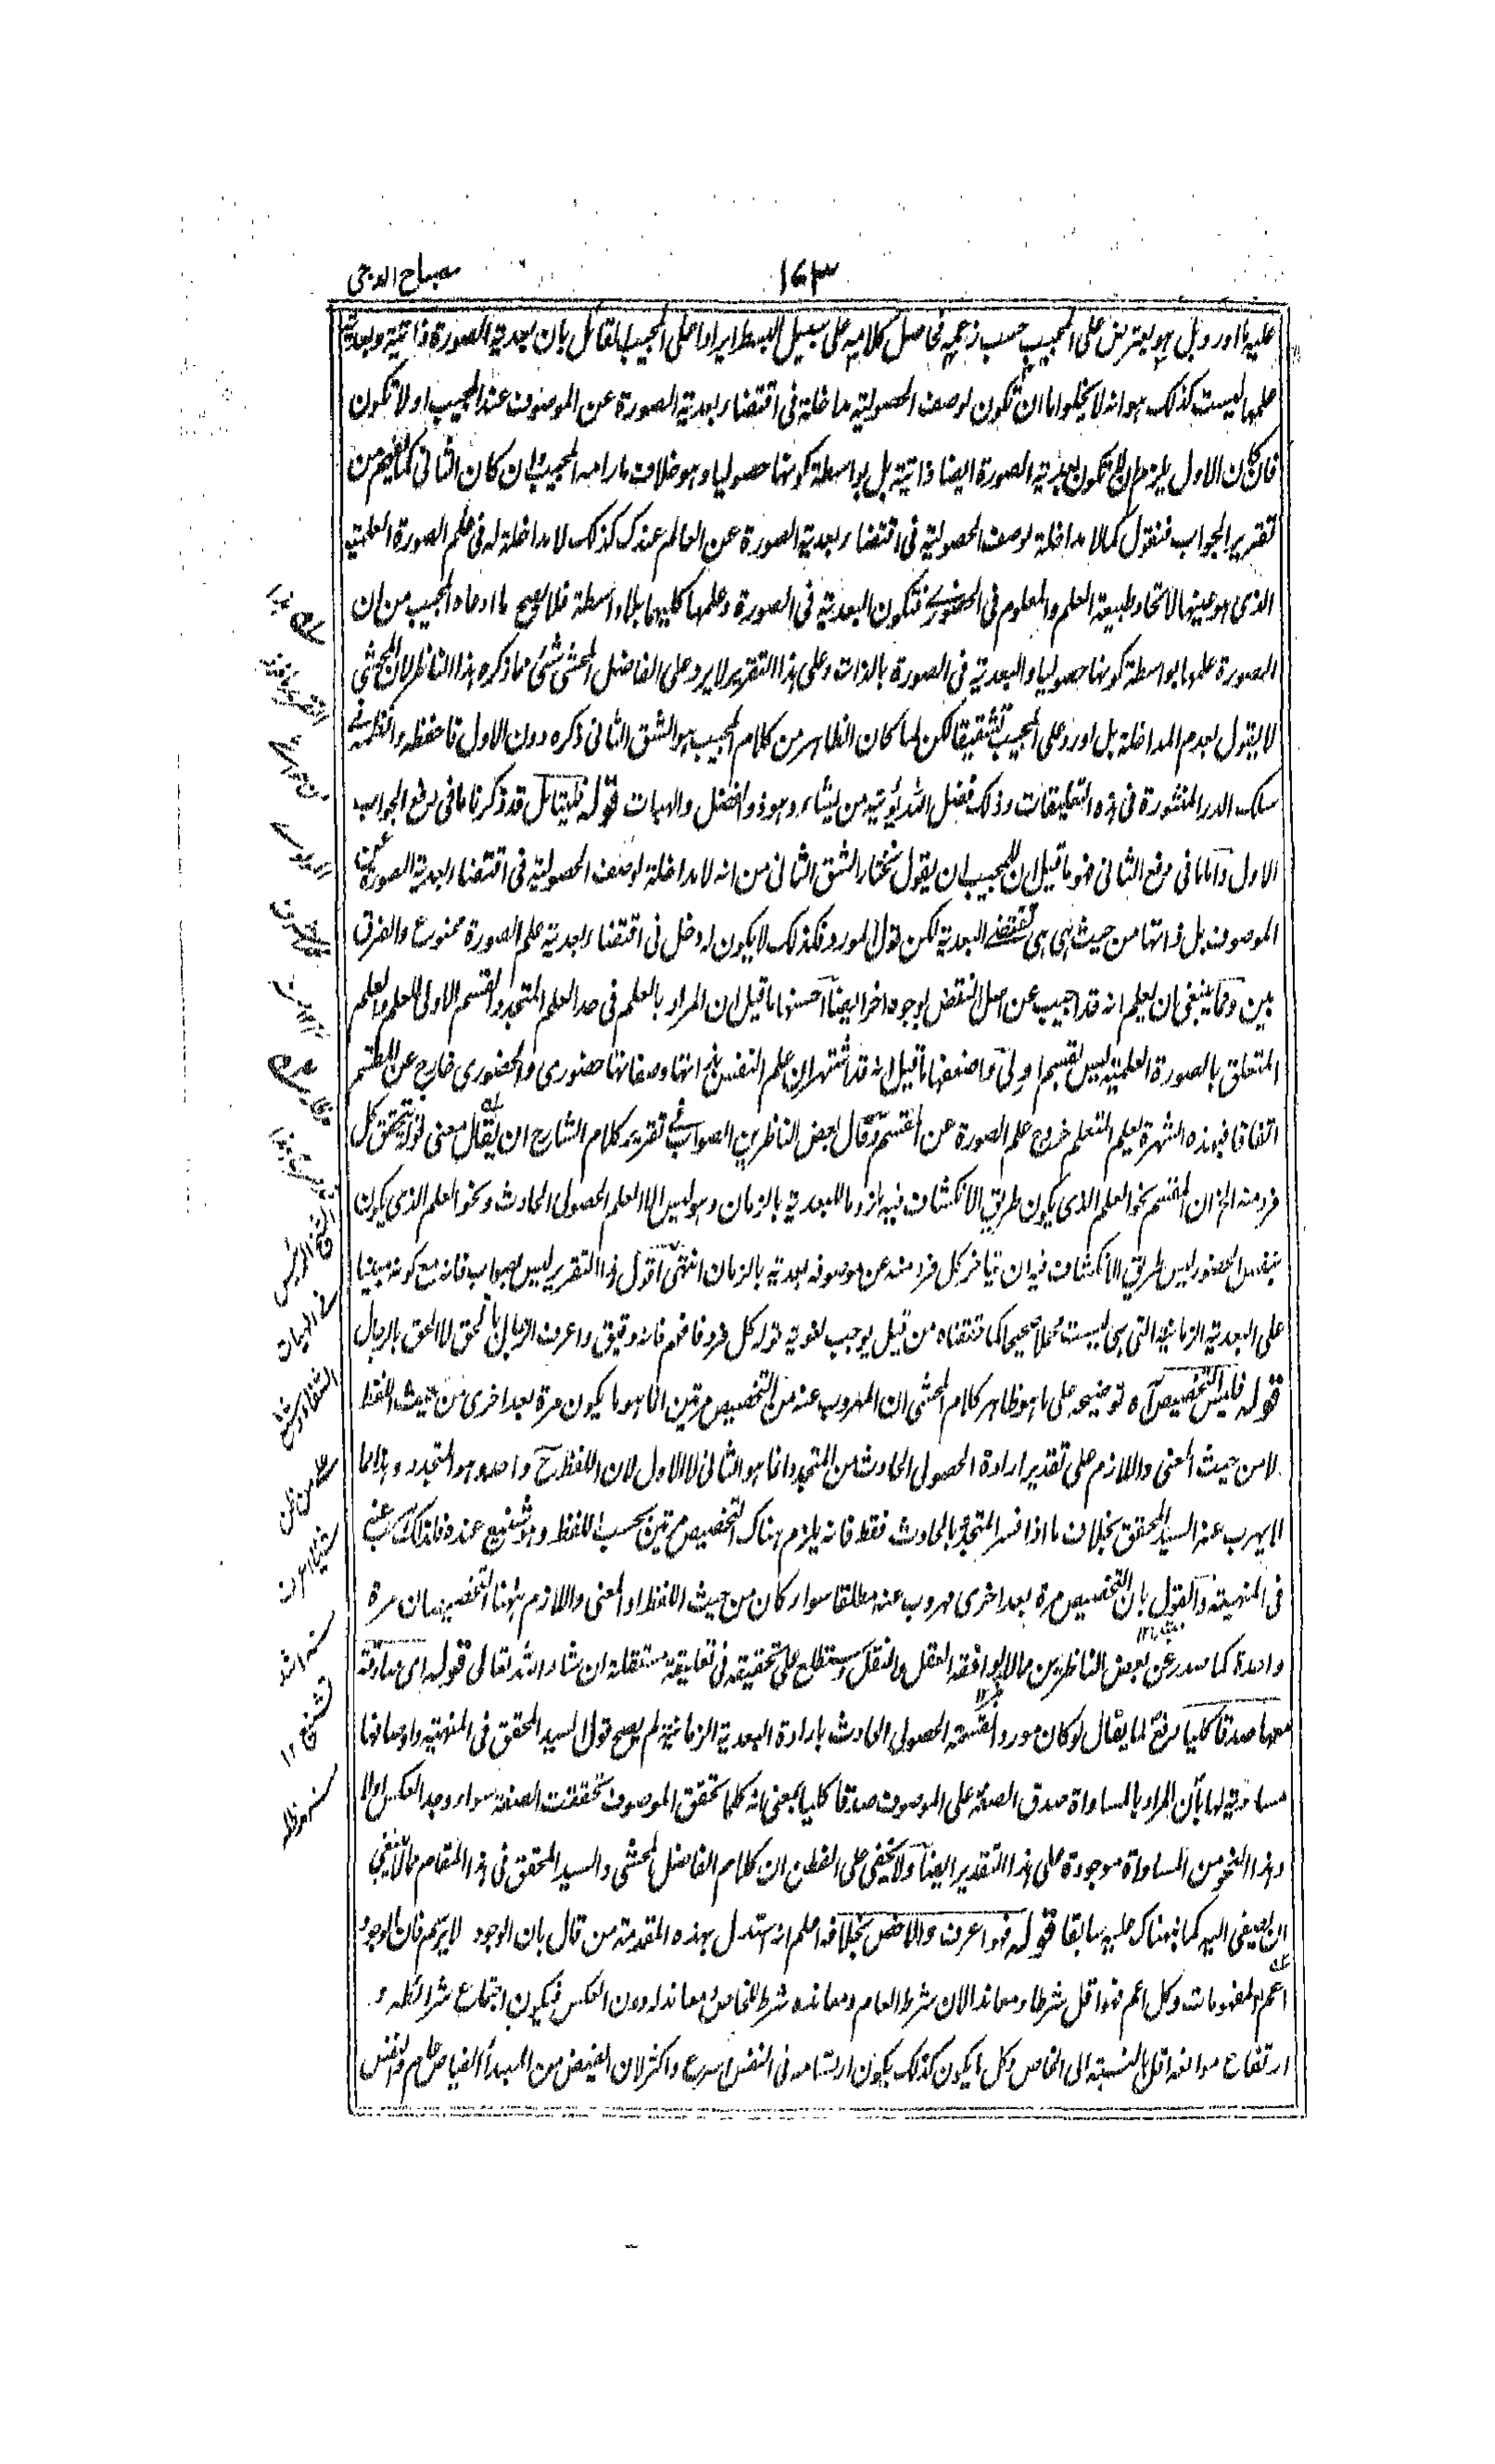 ١٦٣
مصباح الدجى
عليه ما اورد بل هو يعترض على المجيب حسب زعمه فى اصل كلاميه على سبيل البسط ايرادا على المجيب القائل بان بعدية الصورة ذاتية وبعدية
علمها ليست كذلك هو انه لا يخلو اما ان تكون لوصف الحصولية مداخلة فى اقتضاء بعدية الصورة عن الموصوف عند المجيب او لا تكون
فان كان الاول يلزم ان لا تكون بعدية الصورة ايضا ذاتية بل بواسطة كونها حصوليا وهو خلاف ما رامه المجيب وان كان الثانى كما يفهم من
تقرير الجواب فنقول كما لا مداخلة لوصف الحصولية فى اقتضاء بعدية الصورة عن العالم عندك كذلك لا مداخلة له فى علم الصورة العلمية
الذى هو عينها لاتحاد طبيعة العلم والمعلوم فى الحضورى فتكون البعدية فى الصورة وعلمها كليهما بلا واسطة فلا يصح ما ادعاه المجيب من ان
الصورة علمها بواسطة كونها حصوليا والبعدية فى الصورة بالذات وعلى هذا التقرير لا يرد على الفاضل المحشى شئ مما ذكره هذا الناظر لان المحشى
لا يقول بعدم المداخلة بل اورد على المجيب تشقيقا لكن لما كان الظاهر من كلام المجيب هو الشق الثانى ذكره دون الاول فاحفظه وانظمه فى
سلك الدرر المنثورة فى هذه التعليقات وذلك فضل الله يؤتيه من يشاء وهو ذو الفضل والهبات قوله فليتامل قد ذكرنا ما فى دفع الجواب
الاول واما ما فى دفع الثانى فهو ما قيل ان للمجيب ان يقول نختار الشق الثانى من انه لا مداخلة لوصف الحصولية فى اقتضاء بعدية الصورة عن
الموصوف بل ذاتها من حيث هى هى تقتضى البعدية لكن قول المورد فكذلك لا يكون له دخل فى اقتضاء بعدية علم الصورة ممنوع والفرق
بين ومما ينبغى ان يعلم انه قد اجيب عن اصل النقض بوجوه اخر ايضا احسنها ما قيل ان المراد بالعلم فى حد العلم المتجدد القسم الاولى للعلم والعلم
المتعلق بالصورة العلمية ليس بقسم اولى واضعفها ما قيل انه قد اشتهر ان علم النفس بذاتها وصفاتها حضورى والحضورى خارج عن المقسم
اتفاقا فبهذه الشهرة يعلم المتعلم خروج علم الصورة عن المقسم وقال بعض الناظرين الصواب فى تقرير كلام الشارح ان يقال معنى قوله يتحقق كل
فرد منه الخ ان المقسم نحو العلم الذى يكون طريق الانكشاف فيه ملزوما للبعدية بالزمان وهو ليس الا العلم الحصولى الحادث ونحو العلم الذى يكون
بنفس الحضور ليس طريق الانكشاف فيه ان يتاخر كل فرد منه عن موصوفه بعدية بالزمان انتهى اقول هذا التقرير ليس بصواب فانه مع كونه مبنيا
على البعدية الزمانية التى هى ليست محلا صحيحا كما حققناه من قبل يوجب لغوية قوله كل فرد فافهم فانه دقيق واعرف الرجال بالحق لا الحق بالرجال
قوله فليس التخصيص آه توضيحه على ما هو ظاهر كلام المحشى ان المهروب عنه من التخصيص مرتين انما هو ما يكون مرة بعد اخرى من حيث اللفظ
لا من حيث المعنى واللازم على تقدير ارادة الحصولى الحادث من المتجدد انما هو الثانى لا الاول لان اللفظ ح واحد وهو المتجدد وهذا مما
لا يهرب عنه السيد المحقق بخلاف ما اذا فسر المتجدد بالحادث فقط فانه يلزم هناك التخصيص مرتين بحسب اللفظ وهو شنيع عنده فلذلك هرب عنه
فى المنهية والقول بان التخصيص مرة بعد اخرى مهروب عنه مطلقا سواء كان من حيث اللفظ او المعنى واللازم ههنا التخصيصان مرة
واحدة كما صدر عن بعض الناظرين مما لا يوافقه العقل والنقل وستطلع على تحقيقه فى تعليقة مستقلة ان شاء الله تعالى قوله اى صادقة
معها صدقا كليا دفع لما يقال لو كان مورد القسمة الحصولى الحادث بارادة البعدية الزمانية لم يصح قول السيد المحقق فى المنهية واوصافها
مساوية لها بان المراد بالمساواة صدق الصفة على الموصوف صدقا كليا بمعنى انه كلما تحقق الموصوف تحققت الصفة سواء وجد العكس او لا
وهذا النحو من المساواة موجودة على هذا التقدير ايضا ولا يخفى على الفطن ان كلام الفاضل المحشى والسيد المحقق فى هذا المقام مما لا ينبغى
ان يصغى اليه كما نبهناك عليه سابقا قوله فهو اعرف والاخص بخلافه اعلم انه استدل بهذه المقدمة من قال بان الوجود لا يرسم فان الوجود
اعم المفهومات وكل اعم فهو اقل شرطا ومعاندا لان شرط العام ومعانده شرط للخاص ومعاند له دون العكس فيكون اجتماع شرائطه و
ارتفاع موانعه اقل بالنسبة الى الخاص وكل ما يكون كذلك يكون ارتسامه فى النفس اسرع واكثر لان الفيض من المبدأ الفياض عام والنفس
الشيخ الرئيس
فى الهيات
الشفاء وشنع
على من ظن